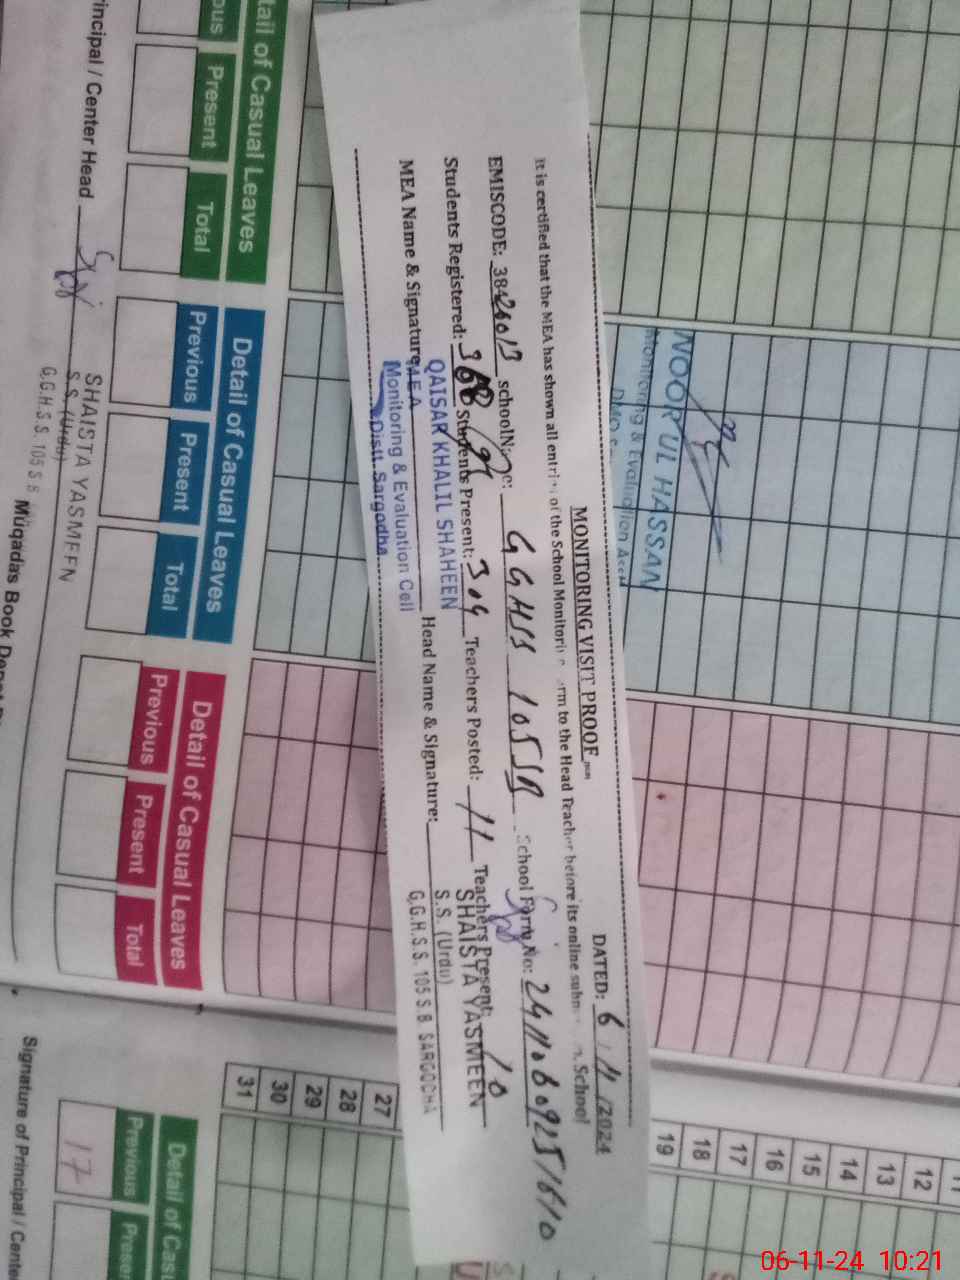 MONITORING VISIT PROOF
DATED: 6/11/2024
It is certified that the MEA has shown all entries of the School Monitoring Form to the Head Teacher before its online School
EMISCODE: 38426013 school Name: GGHSS 105SB School Form No:
Students Registered: Students Present: 304 Teachers Posted: 11 Teachers Present: 10
MEA Name & Signature: Head Name & Signature:
QAISAR KHALIL SHAHEEN
MEA
Monitoring & Evaluation Cell
Distt. Sargodha
SHAISTA YASMEEN
S.S. (Urdu)
G.G.H.S.S. 105 S.B SARGODHA
NOOR UL HASSAN
Monitoring & Evaluation
Detail of Casual Leaves
Present Total
Detail of Casual Leaves
Previous Present Total
Detail of Casual Leaves
Previous Present Total
Principal / Center Head
SHAISTA YASMEEN
S.S. (Urdu)
G.G.H.S.S. 105 S B
Muqadas Book
12
13
14
15
16
17
18
19
27
28
29
30
31
Detail of
Previous
17
Signature of Principal /
06-11-24 10:21